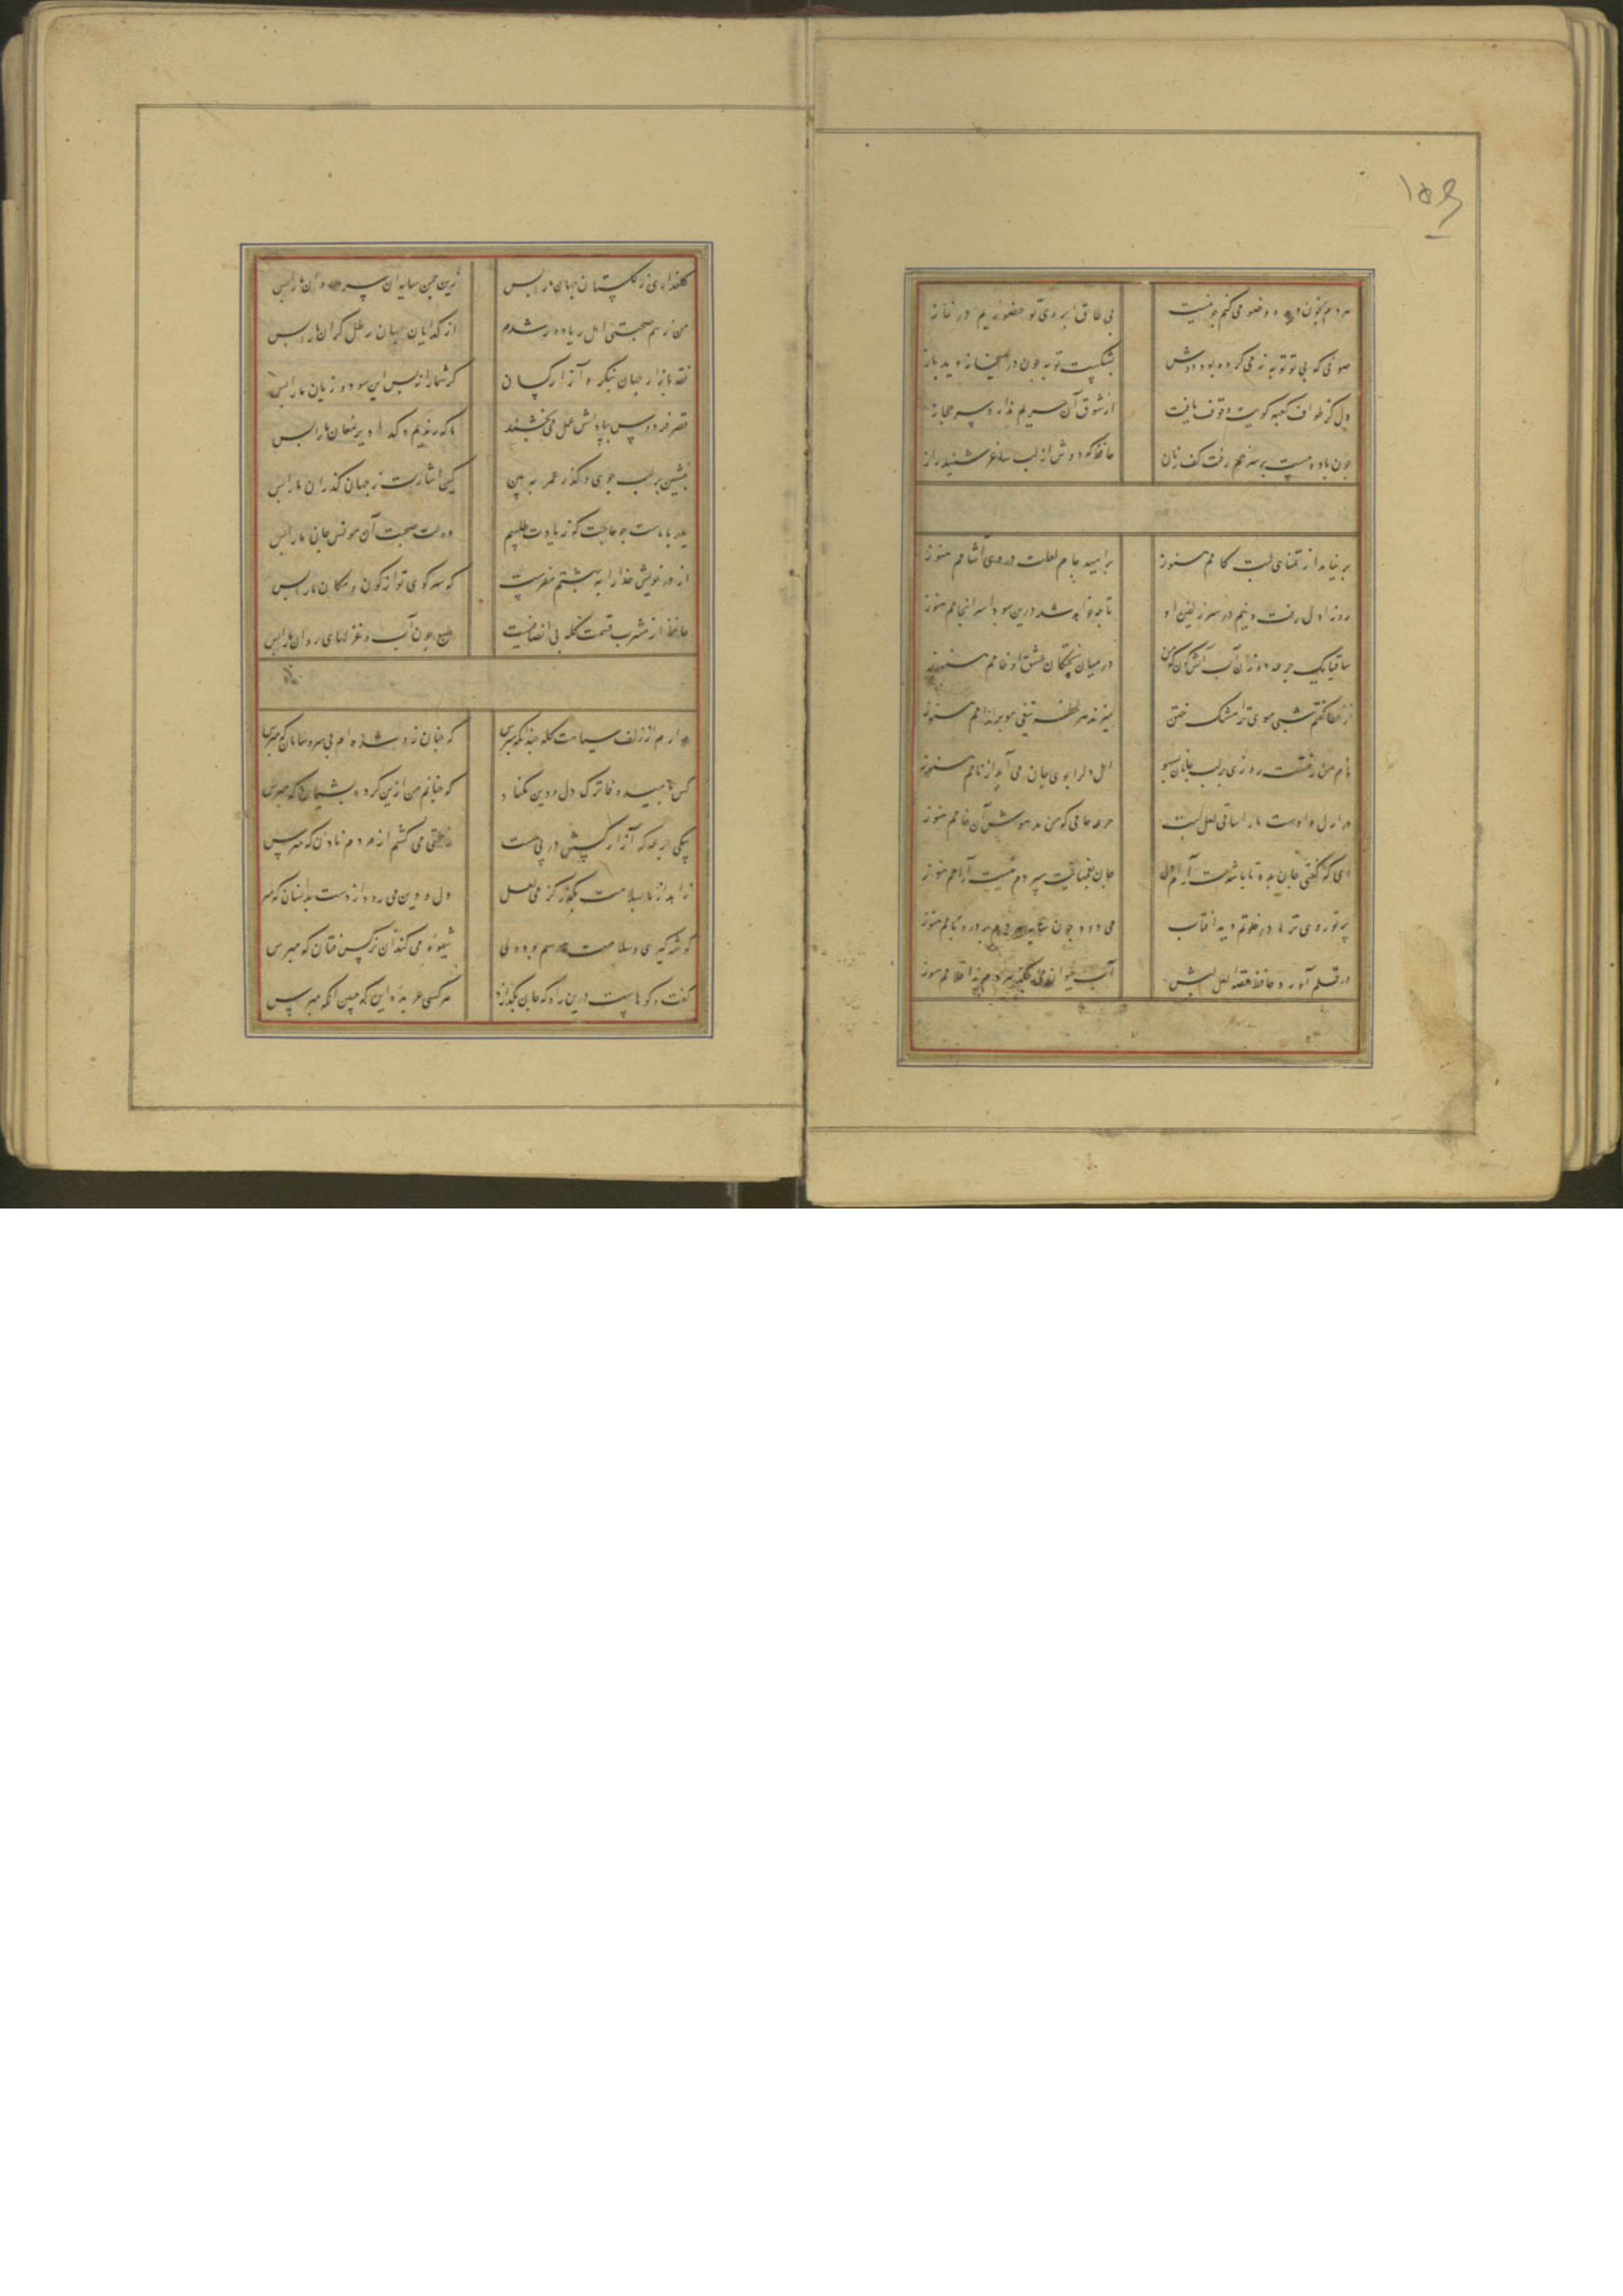 ۱۵۶
هر دم بخون دیده وضو می کنم چو نیست
بی طاق ابروی تو حضوریم در نماز
صوفی که بی تو توبه ز می کرده بود دوش
بشکست توبه چون در میخانه دید باز
دل کز طواف کعبه کویت وقوف یافت
از شوق آن حریم ندارد سر حجاز
چون باده مست بر سر خم رفت کف زنان
حافظ که دوش از لب ساغر شنید راز
بر نیامد از تمنای لبت کامم هنوز
بر امید جام لعلت دردی آشامم هنوز
روز اول رفت دینم در سر زلفین او
تا چه خواهد شد درین سودا سرانجامم هنوز
ساقیا یک جرعه ده زان آب آتش گون که من
در میان پختگان عشق او خامم هنوز
از خطا گفتم شبی موی ترا مشک ختن
میزند هر لحظه تیغی مو بر اندامم هنوز
نام من رفتست روزی بر لب جانان بسهو
اهل دل را بوی جان می آید از نامم هنوز
در ازل دادست ما را ساقی لعل لبت
جرعه جامی که من مدهوش آن جامم هنوز
ای که گفتی جان بده تا باشدت آرام دل
جان بغمهایش سپردم نیست آرامم هنوز
پرتو روی ترا در خلوتم دید آفتاب
می دود چون سایه هر دم بر در و بامم هنوز
در قلم آورد حافظ قصه لعل لبش
آب حیوان می چکد هر دم ز اقلامم هنوز
گلعذاری ز گلستان جهان ما را بس
زین چمن سایه آن سرو روان ما را بس
من ز هم صحبتی اهل ریا دور شدم
از گدایان جهان رطل گران ما را بس
نقد بازار جهان بنگر و آزار کسان
گر شما را نه بس این سود و زیان ما را بس
قصر فردوس بپاداش عمل می بخشند
ما که رندیم و گدا دیر مغان ما را بس
بنشین بر لب جوی و گذر عمر ببین
کین اشارت ز جهان گذران ما را بس
یار با ماست چو حاجت که زیادت طلبیم
دولت صحبت آن مونس جان ما را بس
از در خویش خدا را به بهشتم مفرست
که سر کوی تو از کون و مکان ما را بس
حافظ از مشرب قسمت گله بی انصافیست
طبع چون آب و غزلهای روان ما را بس
دارم از زلف سیاهت گله چندانکه مپرس
که چنان زو شده ام بی سر و سامان که مپرس
کس بامید وفا ترک دل و دین مکناد
که چنانم من ازین کرده پشیمان که مپرس
بیکی جرعه که آزار کسش در پی نیست
زحمتی می کشم از مردم نادان که مپرس
زاهد از ما بسلامت بگذر کز می لعل
دل و دین می رود از دست بدانسان که مپرس
گوشه گیری و سلامت هوسم بود ولی
شیوه می کند آن نرگس فتان که مپرس
گفت و گوهاست درین راه که جان بگدازد
هر کسی عربده این که مبین آنکه مپرس